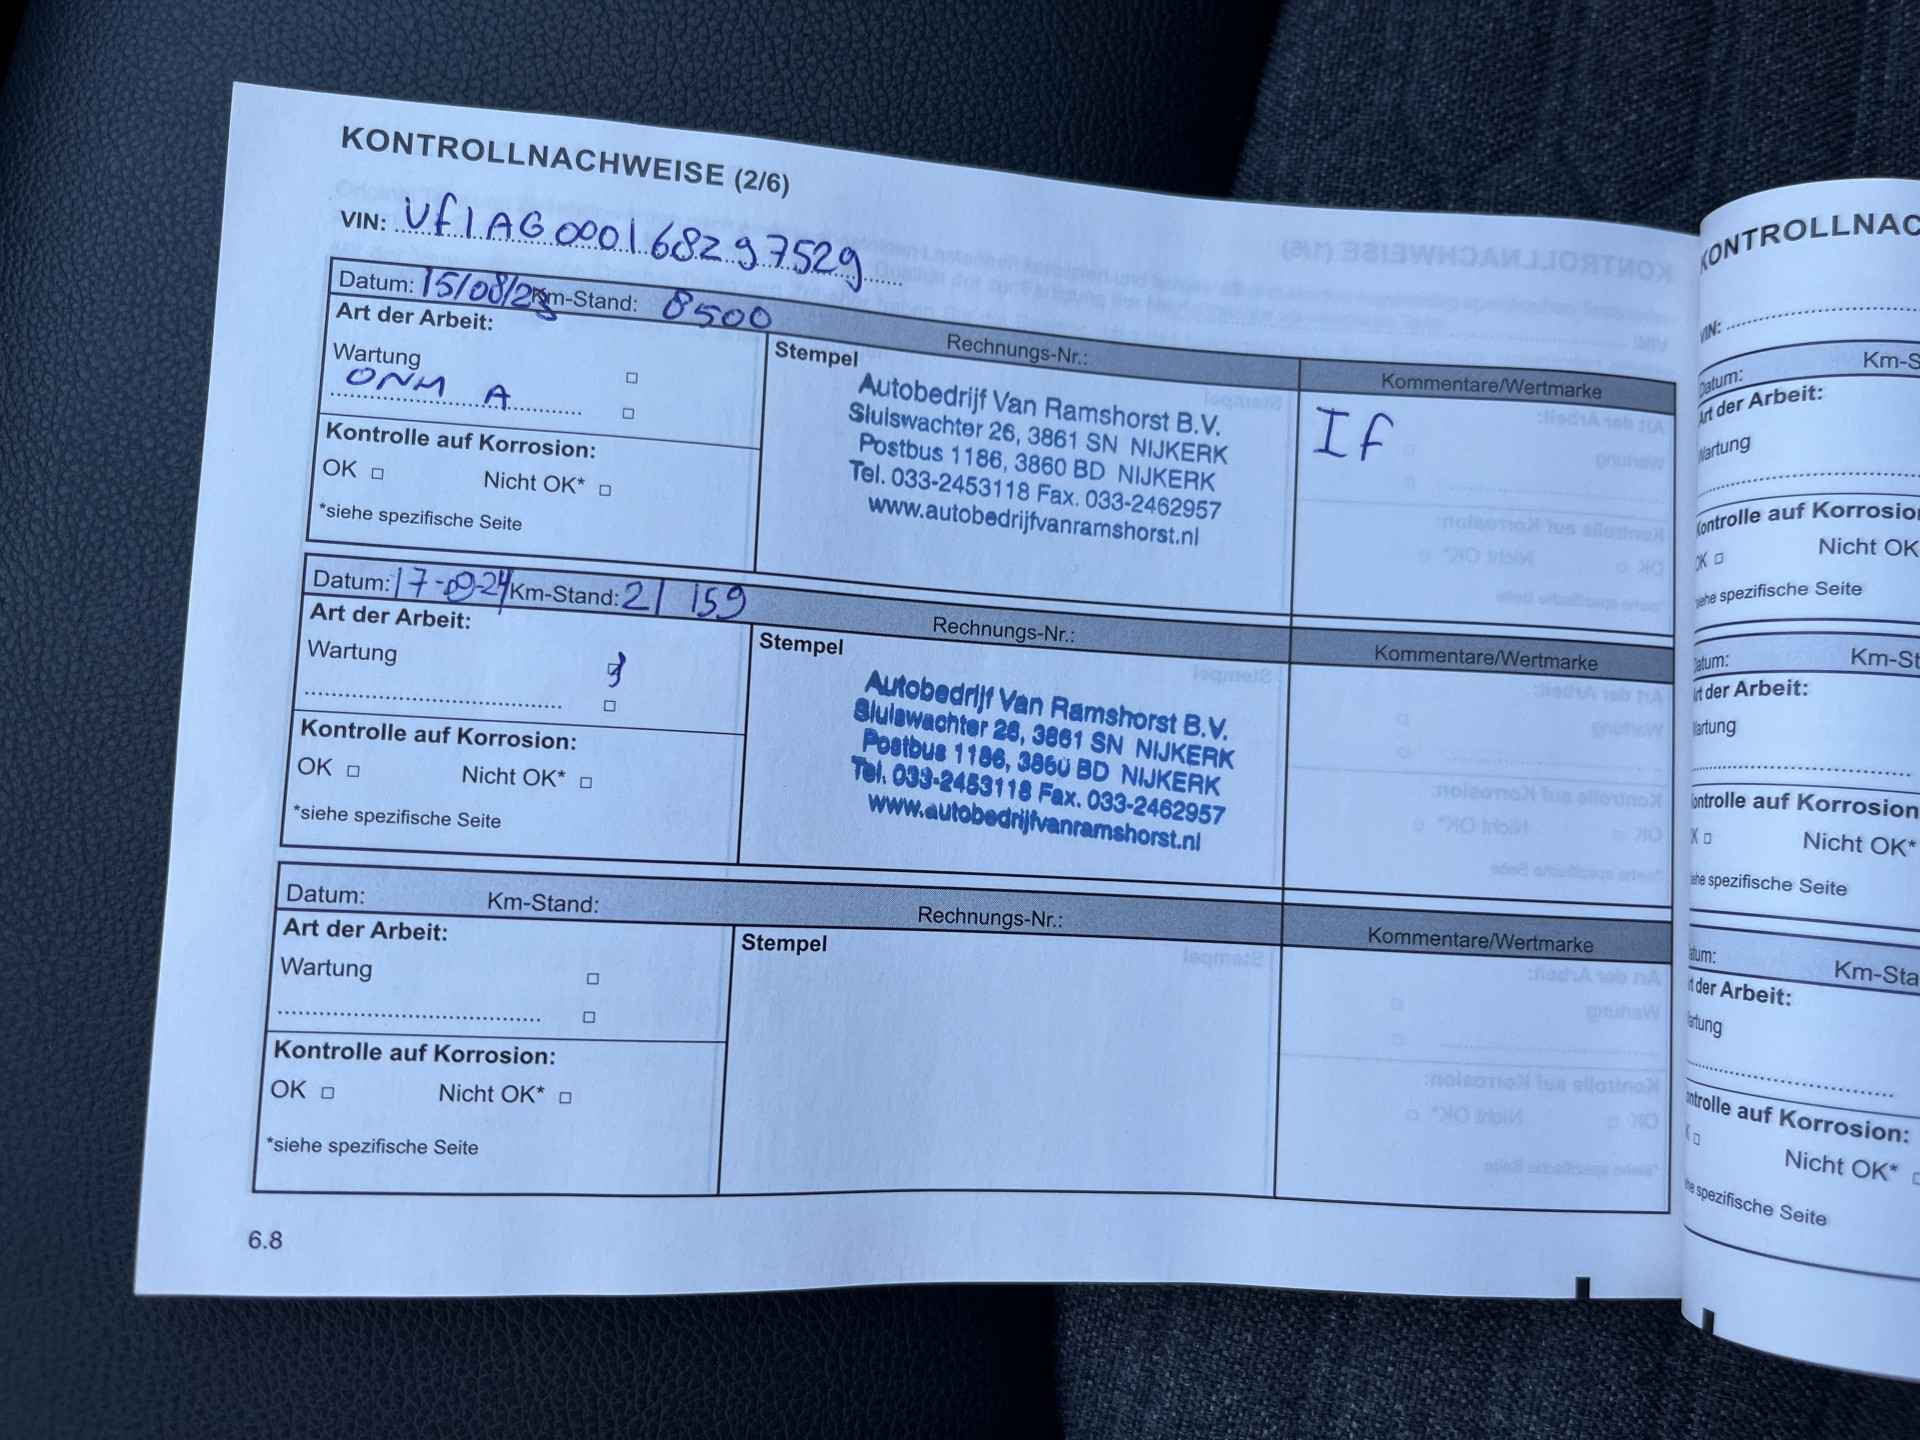 KONTROLLNACHWEISE (2/6)
VIN: Vf1AG000168297529
Datum: 15/08/23 Km-Stand: 8500
Rechnungs-Nr.:
Kommentare/Wertmarke
Art der Arbeit:
Wartung
ONH A
Kontrolle auf Korrosion:
OK Nicht OK*
*siehe spezifische Seite
Stempel
Autobedrijf Van Ramshorst B.V.
Sluiswachter 26, 3861 SN NIJKERK
Postbus 1186, 3860 BD NIJKERK
Tel. 033-2453118 Fax. 033-2462957
www.autobedrijfvanramshorst.nl
If
Datum: 17-09-24 Km-Stand: 21 159
Rechnungs-Nr.:
Kommentare/Wertmarke
Art der Arbeit:
Wartung
Kontrolle auf Korrosion:
OK Nicht OK*
*siehe spezifische Seite
Stempel
Autobedrijf Van Ramshorst B.V.
Sluiswachter 26, 3861 SN NIJKERK
Postbus 1186, 3860 BD NIJKERK
Tel. 033-2453118 Fax. 033-2462957
www.autobedrijfvanramshorst.nl
Datum: Km-Stand:
Rechnungs-Nr.:
Kommentare/Wertmarke
Art der Arbeit:
Wartung
Kontrolle auf Korrosion:
OK Nicht OK*
*siehe spezifische Seite
Stempel
6.8
KONTROLLNAC
VIN:
Datum: Km-S
Art der Arbeit:
Wartung
Kontrolle auf Korrosion
OK Nicht OK
siehe spezifische Seite
Datum: Km-St
Art der Arbeit:
Wartung
Kontrolle auf Korrosion
OK Nicht OK*
siehe spezifische Seite
Datum: Km-Sta
Art der Arbeit:
Wartung
Kontrolle auf Korrosion:
Nicht OK*
siehe spezifische Seite